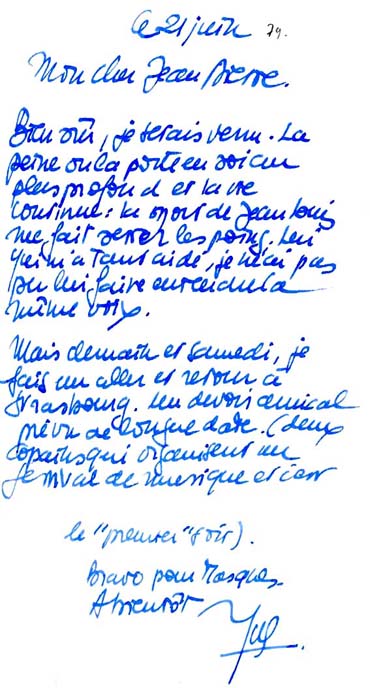 le 21 juin 79.
Mon cher Jean Pierre.
Bien sûr, je serais venu. La
peine on la porte en soi au
plus profond et la vie
continue : la mort de Jean Louis
me fait serrer les poings. Lui
qui m'a tant aidé, je n'ai pas
pu lui faire entendre la
même voix.
Mais demain et samedi, je
fais un aller et retour à
Strasbourg. Un devoir amical
prévu de longue date. (deux
copains qui organisent un
festival de musique et c'est
le "premier" soir).
Bravo pour Masques
A bientôt